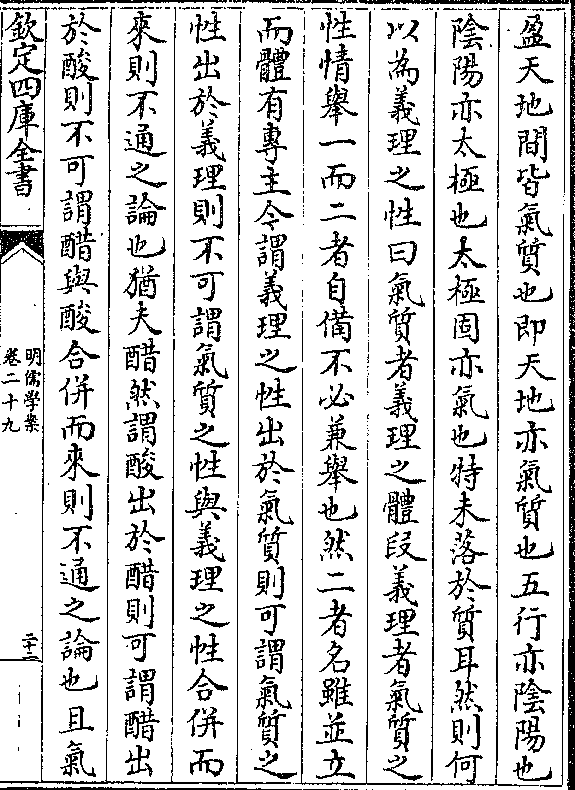 盈天地間皆氣質也即天地亦氣質也五行亦陰陽也
陰陽亦太極也太極固亦氣也特未落於質耳然則何
以為義理之性曰氣質者義理之體段義理者氣質之
性情舉一而二者自備不必兼舉也然二者名雖並立
而體有專主今謂義理之性出於氣質則可謂氣質之
性出於義理則不可謂氣質之性與義理之性合併而
來則不通之論也猶夫醋然謂酸出於醋則可謂醋出
於酸則不可謂醋與酸合併而來則不通之論也且氣
欽定四庫全書
明儒學案
卷二十九
二十二